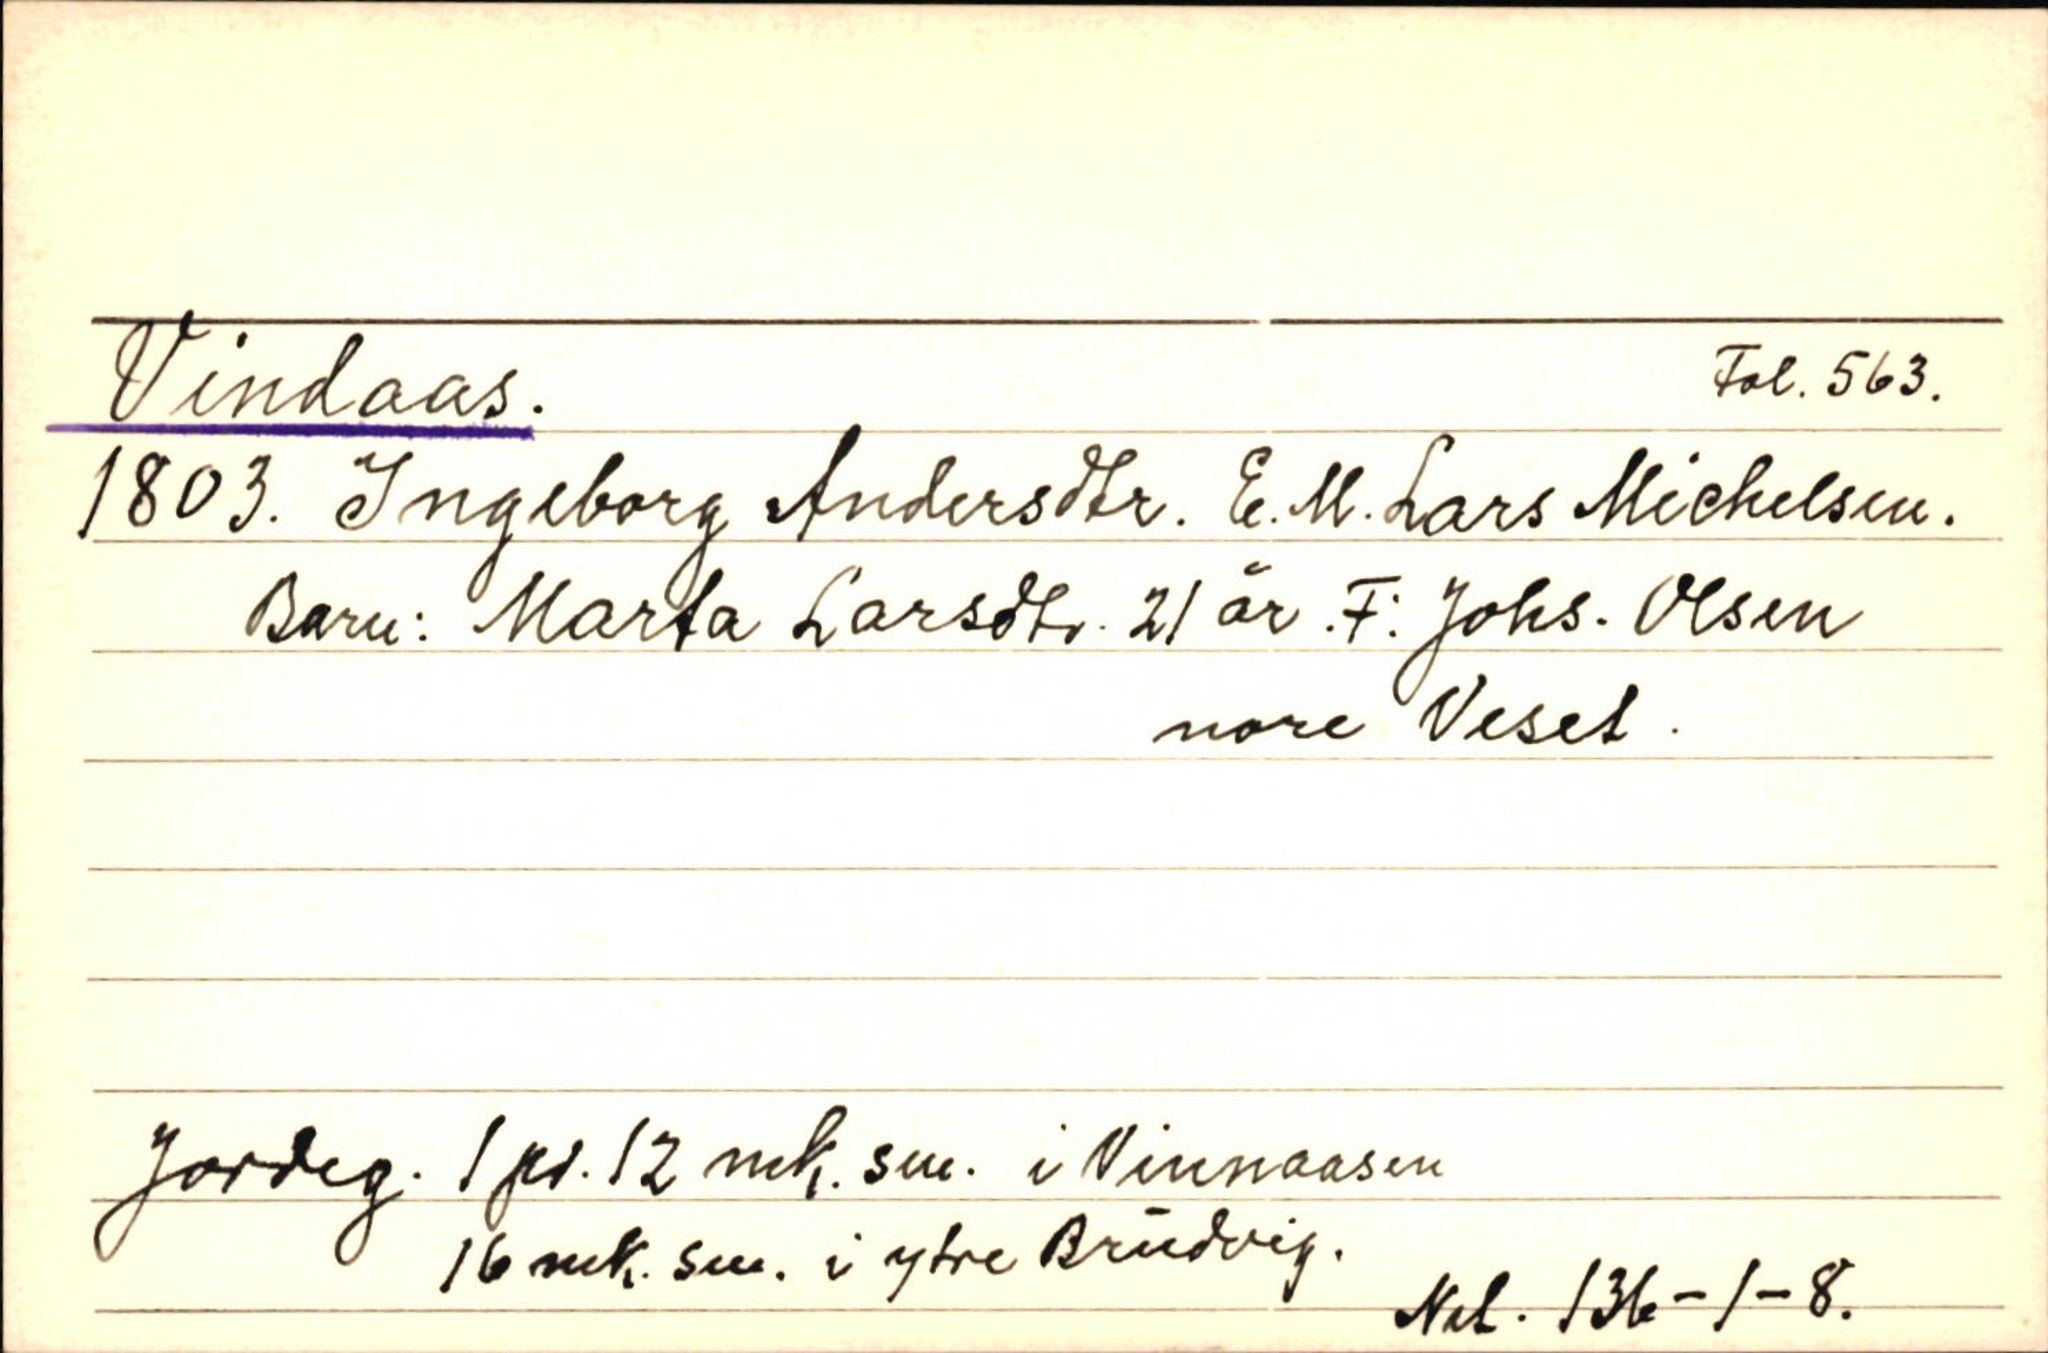 Vindaas. Fol. 563.
1803. Ingeborg Andersdtr. E. M. Lars Michelsen.
Barn: Marta Larsdtr. 21 år. F: Johs. Olsen
nore Veset.
Jordeg. 1 pd. 12 mk. sm. i Vinnaasen
16 mk. sm. i ytre Brūdvig.
Net. 136-1-8.